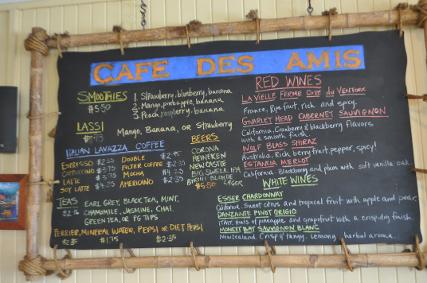 CAFE DES AMIS
SMOOTHIES
$5.50
1. Strawberry, blueberry, banana
2. Mango, pineapple, banana
3. Peach, raspberry, banana
LASSI
Mango, Banana, or Strawberry
ITALIAN LAVAZZA COFFEE
ESPRESSO
DOUBLE
CAPPUCCINO
FILTER COFFEE
LATTE
MOCHA
SOY LATTE
AMERICANO
BEERS
CORONA
HEINEKEN
NEWCASTLE
BIG SWELL IPA
BIKINI BLONDE
$5.50
TEAS
EARL GREY, BLACK TEA, MINT,
CHAMOMILE, JASMINE, CHAI,
GREEN TEA, or PG TIPS
PERRIER, MINERAL WATER, PEPSI or DIET PEPSI
RED WINES
LA VIELLE FERME COTE DU VENTOUX
France, Ripe fruit, rich and spicy.
GNARLEY HEAD CABERNET SAUVIGNON
California, Cranberry & blackberry flavors
with a smooth finish.
WOLF BLASS SHIRAZ
Australia, Rich berry fruit, pepper, spicy!
ESTANCIA MERLOT
California, Blackberry and plum with soft vanilla oak
WHITE WINES
ESSER CHARDONNAY
California, Sweet citrus and tropical fruit with apple and pear
DANZANTE PINOT GRIGIO
Italy, fruits of pineapple and grapefruit with a crisp dry finish.
MONKEY BAY SAUVIGNON BLANC
New Zealand, Crisp & tangy, Lemony, herbal aroma